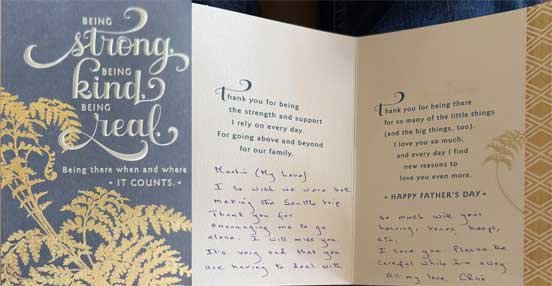 BEING
strong,
BEING
kind,
BEING
real.
Being there when and where
• IT COUNTS. •
Thank you for being
the strength and support
I rely on every day.
For going above and beyond
for our family.
(My Love)
I so wish we were both
making the Seattle trip
Thank you for
encouraging me to go
alone. I will miss you
It's very sad that you
are having to deal with
Thank you for being there
for so many of the little things
(and the big things, too).
I love you so much,
and every day I find
new reasons to
love you even more.
• HAPPY FATHER'S DAY •
so much with your
hearing, knees,
etc.
I love you. Please be
careful while I'm away
All my love,